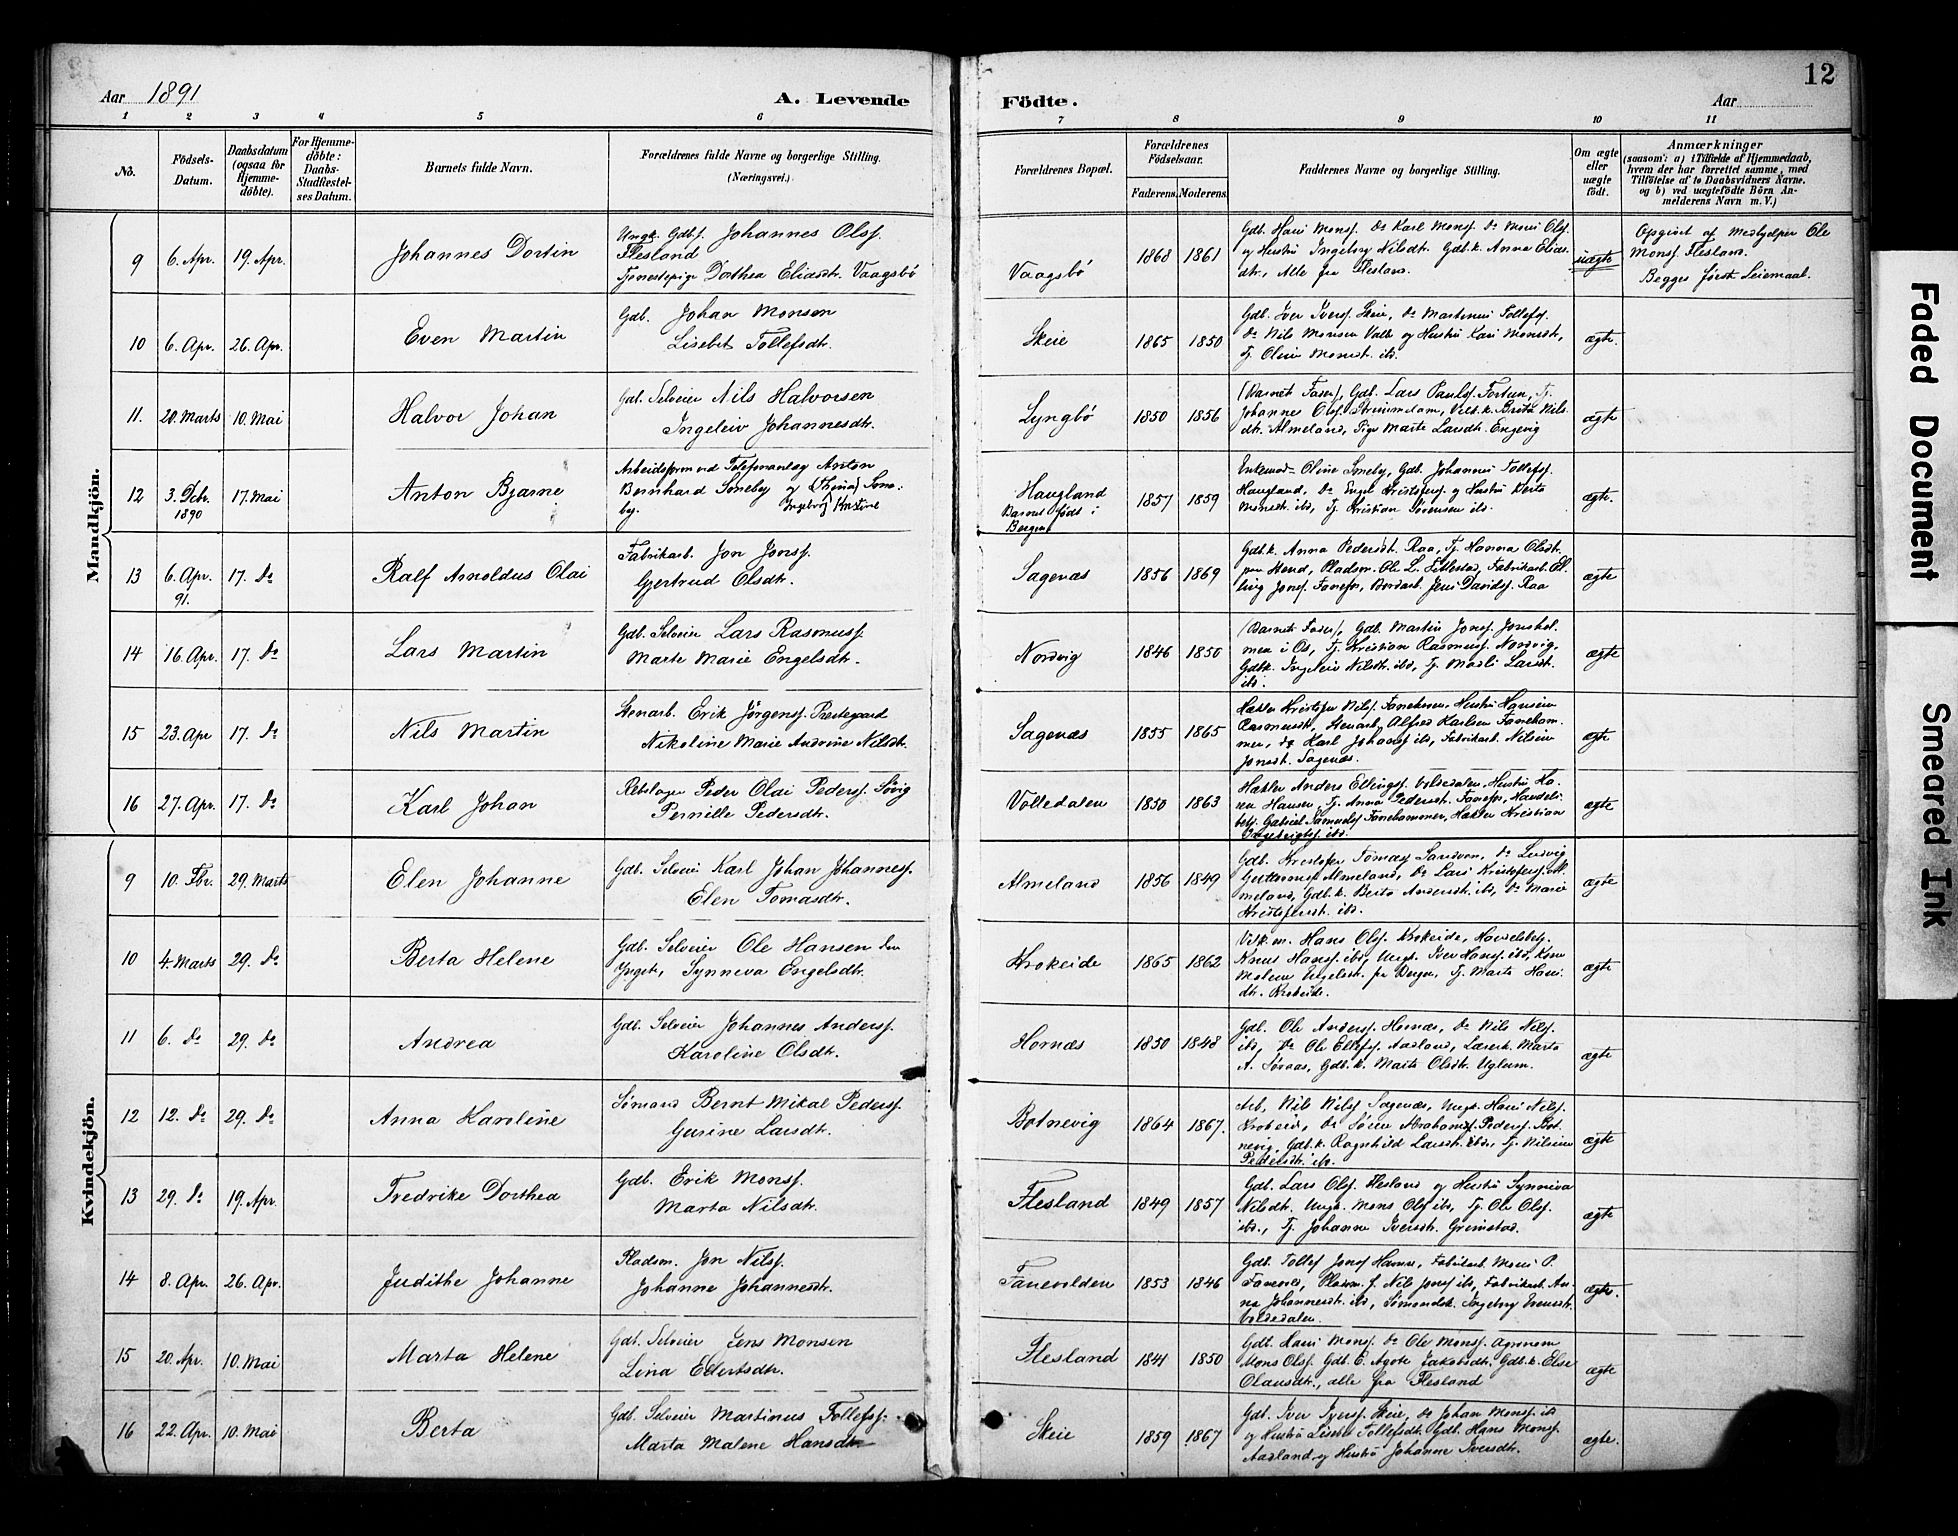 12
Aar 1891
A. Levende
Födte.
Aar
1 2 3 4 5 6 7 8 9 10 11
No.
Födsels-Datum.
Daabsdatum (ogsaa for Hjemme-döbte).
For Hjemme-döbte: Daabs-Stadfæstel-ses Datum.
Barnets fulde Navn.
Forældrenes fulde Navne og borgerlige Stilling. (Næringsvei.)
Forældrenes Bopæl.
Forældrenes Födselsaar.
Faderens. Moderens.
Faddernes Navne og borgerlige Stilling.
Om ægte eller uægte födt.
Anmærkninger
(saasom: a) i Tilfælde af Hjemmedaab, hvem der har forrettet samme, med Tilföielse af to Daabsvidners Navne. og b) ved uægtefödte Börn An-melderens Navn m. V.)
Mandkjön.
9 6. Apr. 19. Apr. Johannes Dortin
Ungk. Gdbs. Johannes Olsf.
Flesland
Tjenestepige Dorthea Eliasdtr. Vaagsbö
Vaagsbö 1868 1861
Gdb. Hans Monsf. Do Karl Monsf. Do Mons Olsf.
og Hustru Ingeborg Nilsdtr. Gdb.k. Anna Elias
dtr., Alle fra Flesland.
uægte
Opgivet af Medhjelper Ole
Monsf. Flesland.
Begges første Leiemaal.
10 6. Apr. 26. Apr. Even Martin
Gdb. Johan Monsen
Lisebet Tollefsdtr.
Skeie 1865 1850
Gdb. Iver Iversf. Skeie, Do Martinus Tollefsf.
Do Nils Monsen Valle og Hustru Kari Monsdtr,
Tj. Oline Monsdt. ibd.
ægte.
11. 20. Marts 10. Mai Halvor Johan
Gdb. Selveier Nils Halvorsen
Ingeleiv Johannesdtr.
Lyngbö 1850 1856
(Barnets Fader), Gdb. Lars Paulsf. Fortun, Tj.
Johannes Olsf. Almeland, Pige Marte Larsdtr. Engevig
ægte
12 3. Debr. 1890 17. Mai Anton Bjarne
Arbeidsform. ved Telefonanlæg Anton
Bernhard Smeby og (Thona) Sme-
by. Ingeborg Kristine
Haugland
Barnet født i
Bergen
1857 1859
Enkemad. Oline Smeby, Gdb. Johannes Tollefsf.
Haugland, Do Engel Kristofersf. og Hustru Berta
Monsdtr. ibd, Tj. Kristian Sørensen ibd.
ægte.
13 6. Apr. 91. 17. Do Ralf Arnoldus Olai
Fabrikarb. Jon Jonsf.
Gjertrud Olsdtr.
Sagenæs 1856 1869
Gdb.k. Anna Pedersdt. Raa, Tj. Hanna Olsdtr.
Pladsm. Ole L. Fabrikarb. El-
ling Jonsf. Jens Davidsf. Raa
ægte
14 16. Apr. 17. Do Lars Martin
Gdb. Selveier Lars Rasmusf.
Marte Marie Engelsdtr.
Nordvig 1846 1850
(Barnets Fader), Gdb. Martin Jonsf. Jonshol-
men i Os, Tj. Kristian Rasmusf. Nordvig,
Gdbk. Ingleiv Nilsdtr. ibd, Tj. Marli Larsdt.
ibd.
ægte
15 23. Apr 17. Do Nils Martin
Stenarb. Erik Jörgensf. Prestegaard
Nikoline Marie Andrine Nilsdtr.
Sagenæs 1855 1865
Rasmusdtr, Stenarb. Alfred Karlsen Faneham-
mer, Do Karl Johansf ibd, Fabrikarb. Nilsine
Jonsdt. Sagenæs.
ægte
16 27. Apr. 17. Do Karl Johan
Rebslager Peder Olai Pedersf. Søvig
Pernille Pedersdtr.
Volledalen 1850 1863
Hækler Anders Ellingsf. Hustru Ka-
ren Hansen, Tj. Anna Pedersdt. Hækler Kristian
ibd.
ægte
Kvindekjön.
9 10. Fbr. 29. Marts Elen Johanne
Gdb. Selveier Karl Johan Johannesf.
Elen Tomasdtr.
Almeland 1856 1849
Gdb. Kristofer Tomasf Sandven, Do Ludvig
Almeland, Do Lars Kristofersf. Al-
meland, Gdb.k. Berta Andersdt. ibd, Do Marie
Kristofersdt. ibd.
ægte
10 4. Marts 29. Do Berta Helene
Gdb. Selveier Ole Hansen den
Yngste, Synneva Engelsdtr.
Krokeide 1865 1862
Hans Olsf. Krokeide, Handelsbetj.
Knut Hansf. ibd, Ungk. Iver Hansf. ibd,
Malene Engelsdt. fra Bergen, Tj. Marta Hans-
dtr. Krokeide.
ægte
11 6. Do 29. Do Andrea
Gdb. Selveier Johannes Andersf.
Karoline Olsdtr.
Hornæs 1850 1848
Gdb. Ole Andersf. Hornæs, Do Nils Nilsf.
ibd, Do Ole Ellefsf. Aadland, Lærerk. Marta
A. Søraas, Gdb.k. Marta Olsdtr. Uglum.
ægte
12 12. Do 29. Do Anna Karoline
Sømand Bernt Mikal Pedersf.
Gurine Larsdtr.
Botnevig 1864 1867.
Arb. Nils Nilsf Sagenæs, Ungk. Hans Nilsf.
Krokeid, Do Søren Abrahamsf Pedersf. Bot-
nevig, Gdb.k. Ragnhild Larsdt. ibd., Tj. Nilsine
Pedersdtr. ib.
ægte
13 29. Do 19. Apr. Fredrike Dorthea
Gdb. Erik Monsf.
Marta Nilsdtr.
Flesland 1849 1857
Gdb. Lars Olsf. Flesland og Hustru Synneva
Nilsdt. Ungk. Mons Olsf ibd, Tj. Ole Olsf.
ibd., Tj. Johanne Iversdt. Grimstad.
ægte
14 8. Apr. 26. Apr. Judithe Johanne
Pladsm. Jon Nilsf.
Johanne Johannesdtr.
Fanevolden 1853 1846
Gdb. Tollef Jonsf Hamre, Fabrikarb. Mons P.
Fanevold, Pladsm.f. Nils Jonsf ibd, Fabrikarb. An-
na Johannesdt. ibd, Sømandsk. Ingeborg Iversdt.
Voldedalen.
ægte.
15 20. Apr. 10. Mai Marta Helene
Gdb. Selveier Jens Monsen
Lina Edertsdtr.
Flesland 1841 1850
Gdb. Hans Monsf. Do Ole Monsf. Agronom
Mons Olsf. Gdb. E. Agote Jakobsdtr. Gdb.k. Else
Olausdtr., alle fra Flesland
ægte
16 22. Apr. 10. Mai Berta
Gdb. Selveier Martinus Tollefsf.
Marta Malene Hansdtr
Skeie 1859 1867
Gdb. Iver Iversf. Skeie, Do Johan Monsf. ib
og Hustru Lisebet Tollefsdt. Gdb. Hans Monsf.
Aadland og Hustru Johanne Iversdtr.
ægte.
Faded Document
Smeared Ink